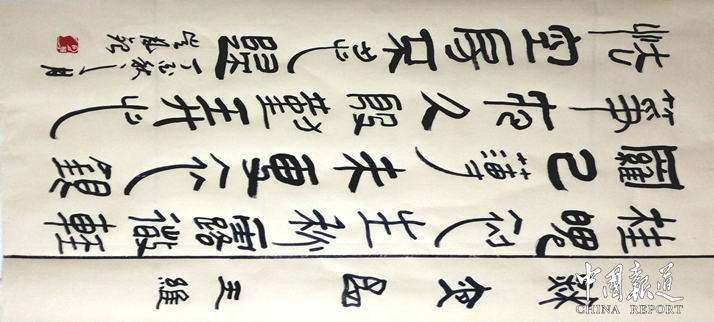 秋夜曲 王維
桂魄初生秋露微輕
羅已薄未更衣銀
筝夜久殷勤弄心
怯空房不忍歸
丁酉秋月
中国报道
CHINA REPORT